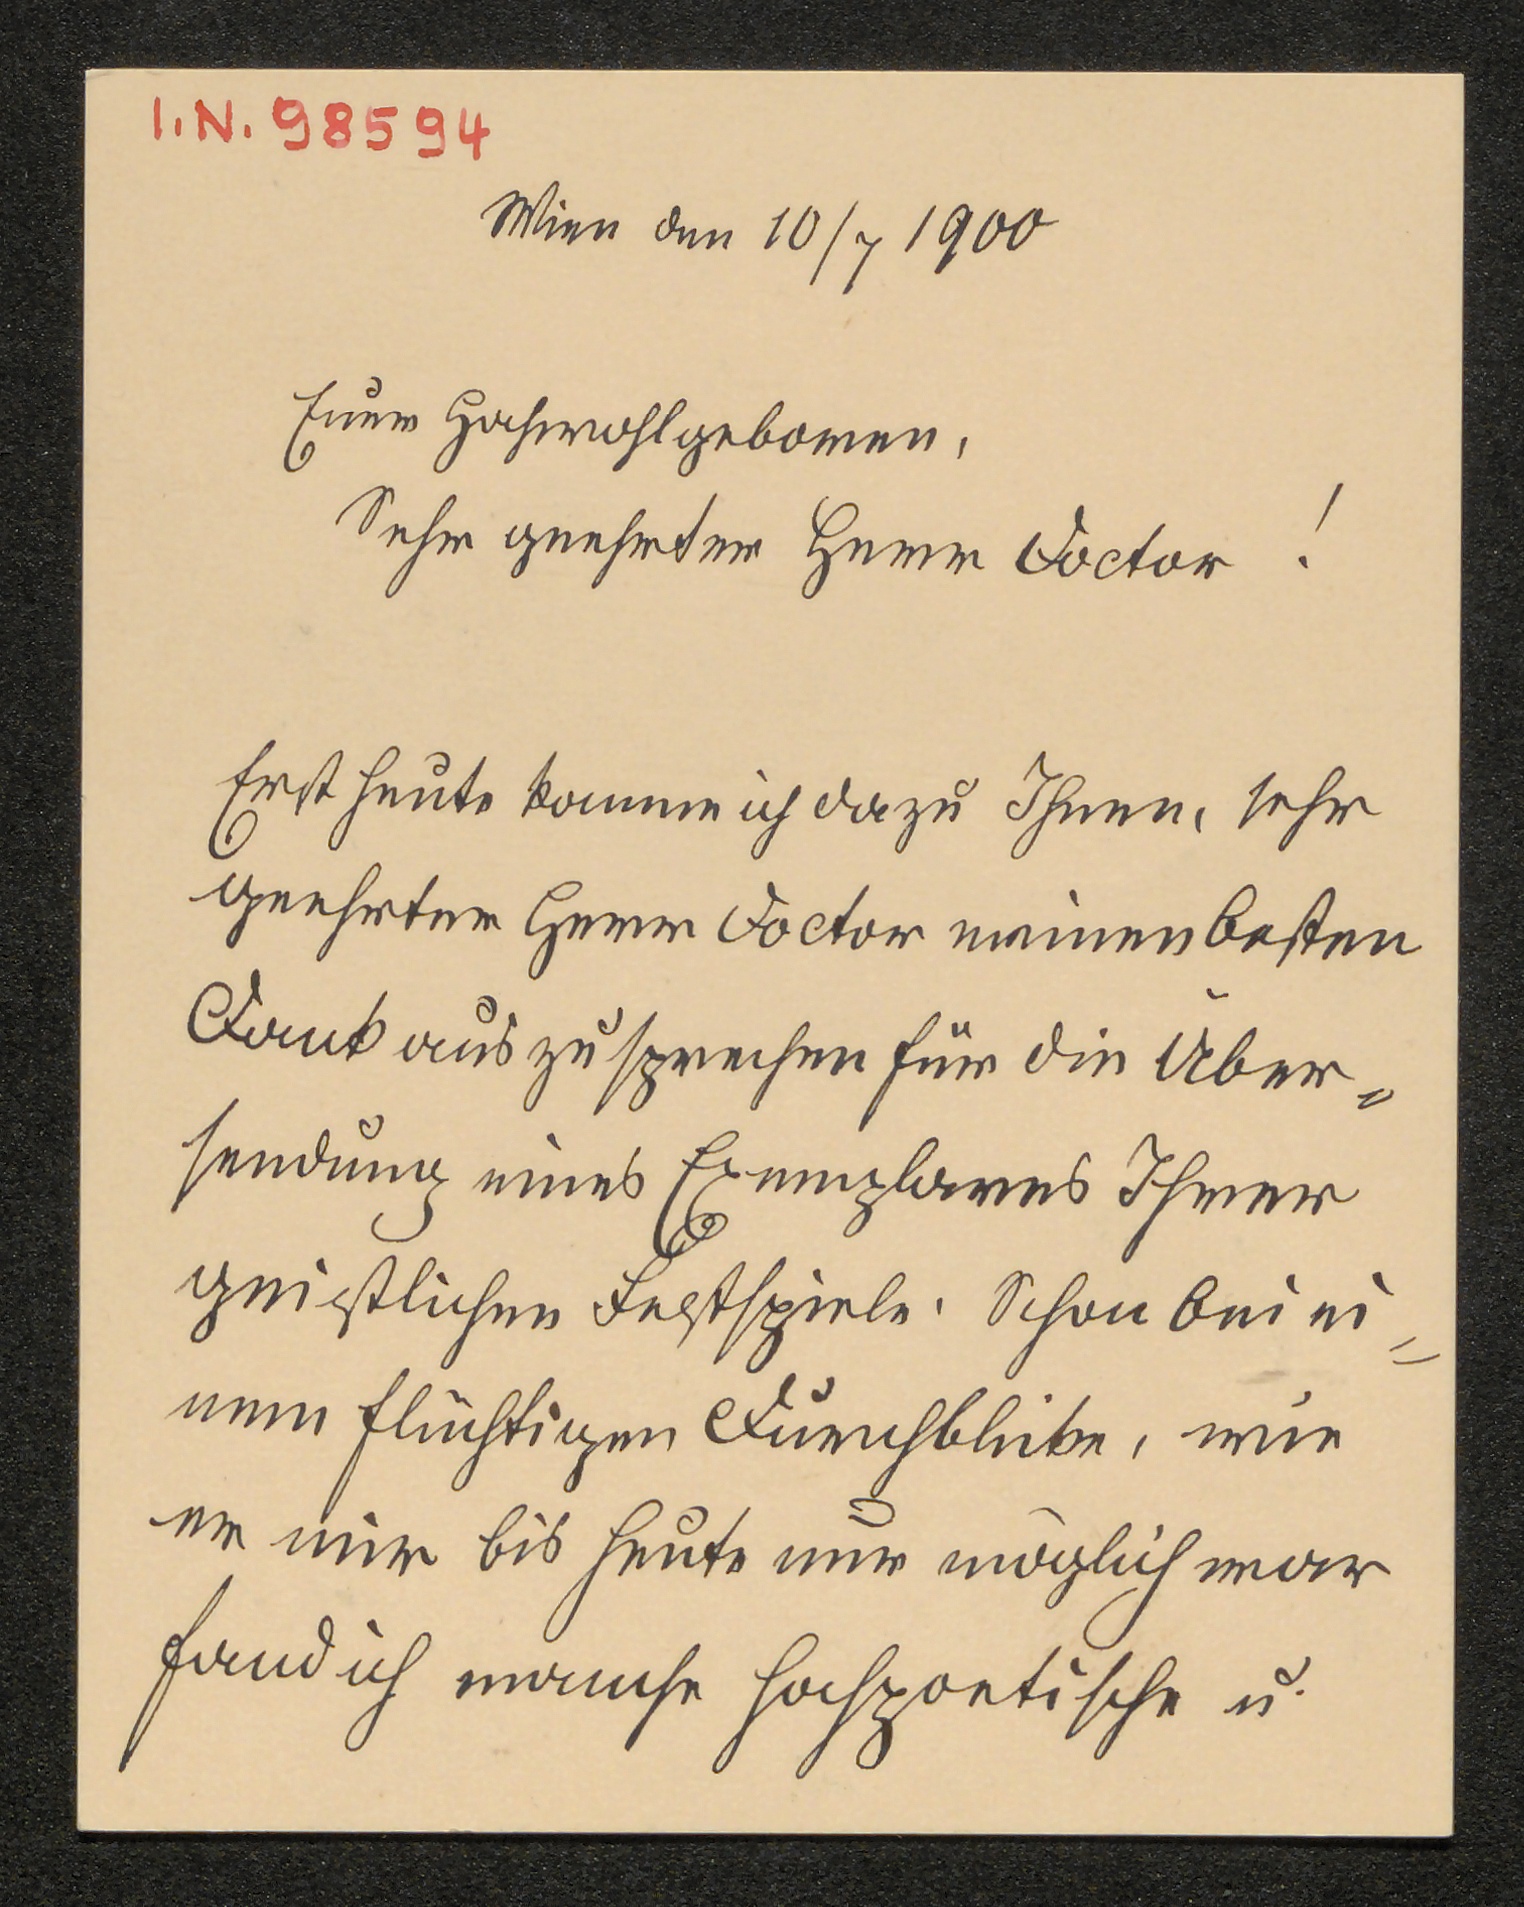 I.N. 98594
Wien den 10/7 1900
Euer Hochwohlgeboren,
Sehr geehrter Herr Doctor !
Erst heute komme ich dazu Ihnen, sehr
geehrter Herr Doctor meinen besten
Dank auszusprechen für die Über=
sendung eines Exemplares Ihrer
geistlichen Festspiele. Schon bei ei=
nem flüchtigen Durchblicke, wie
er mir bis heute nur möglich war
fand ich manche hochpoetische u.